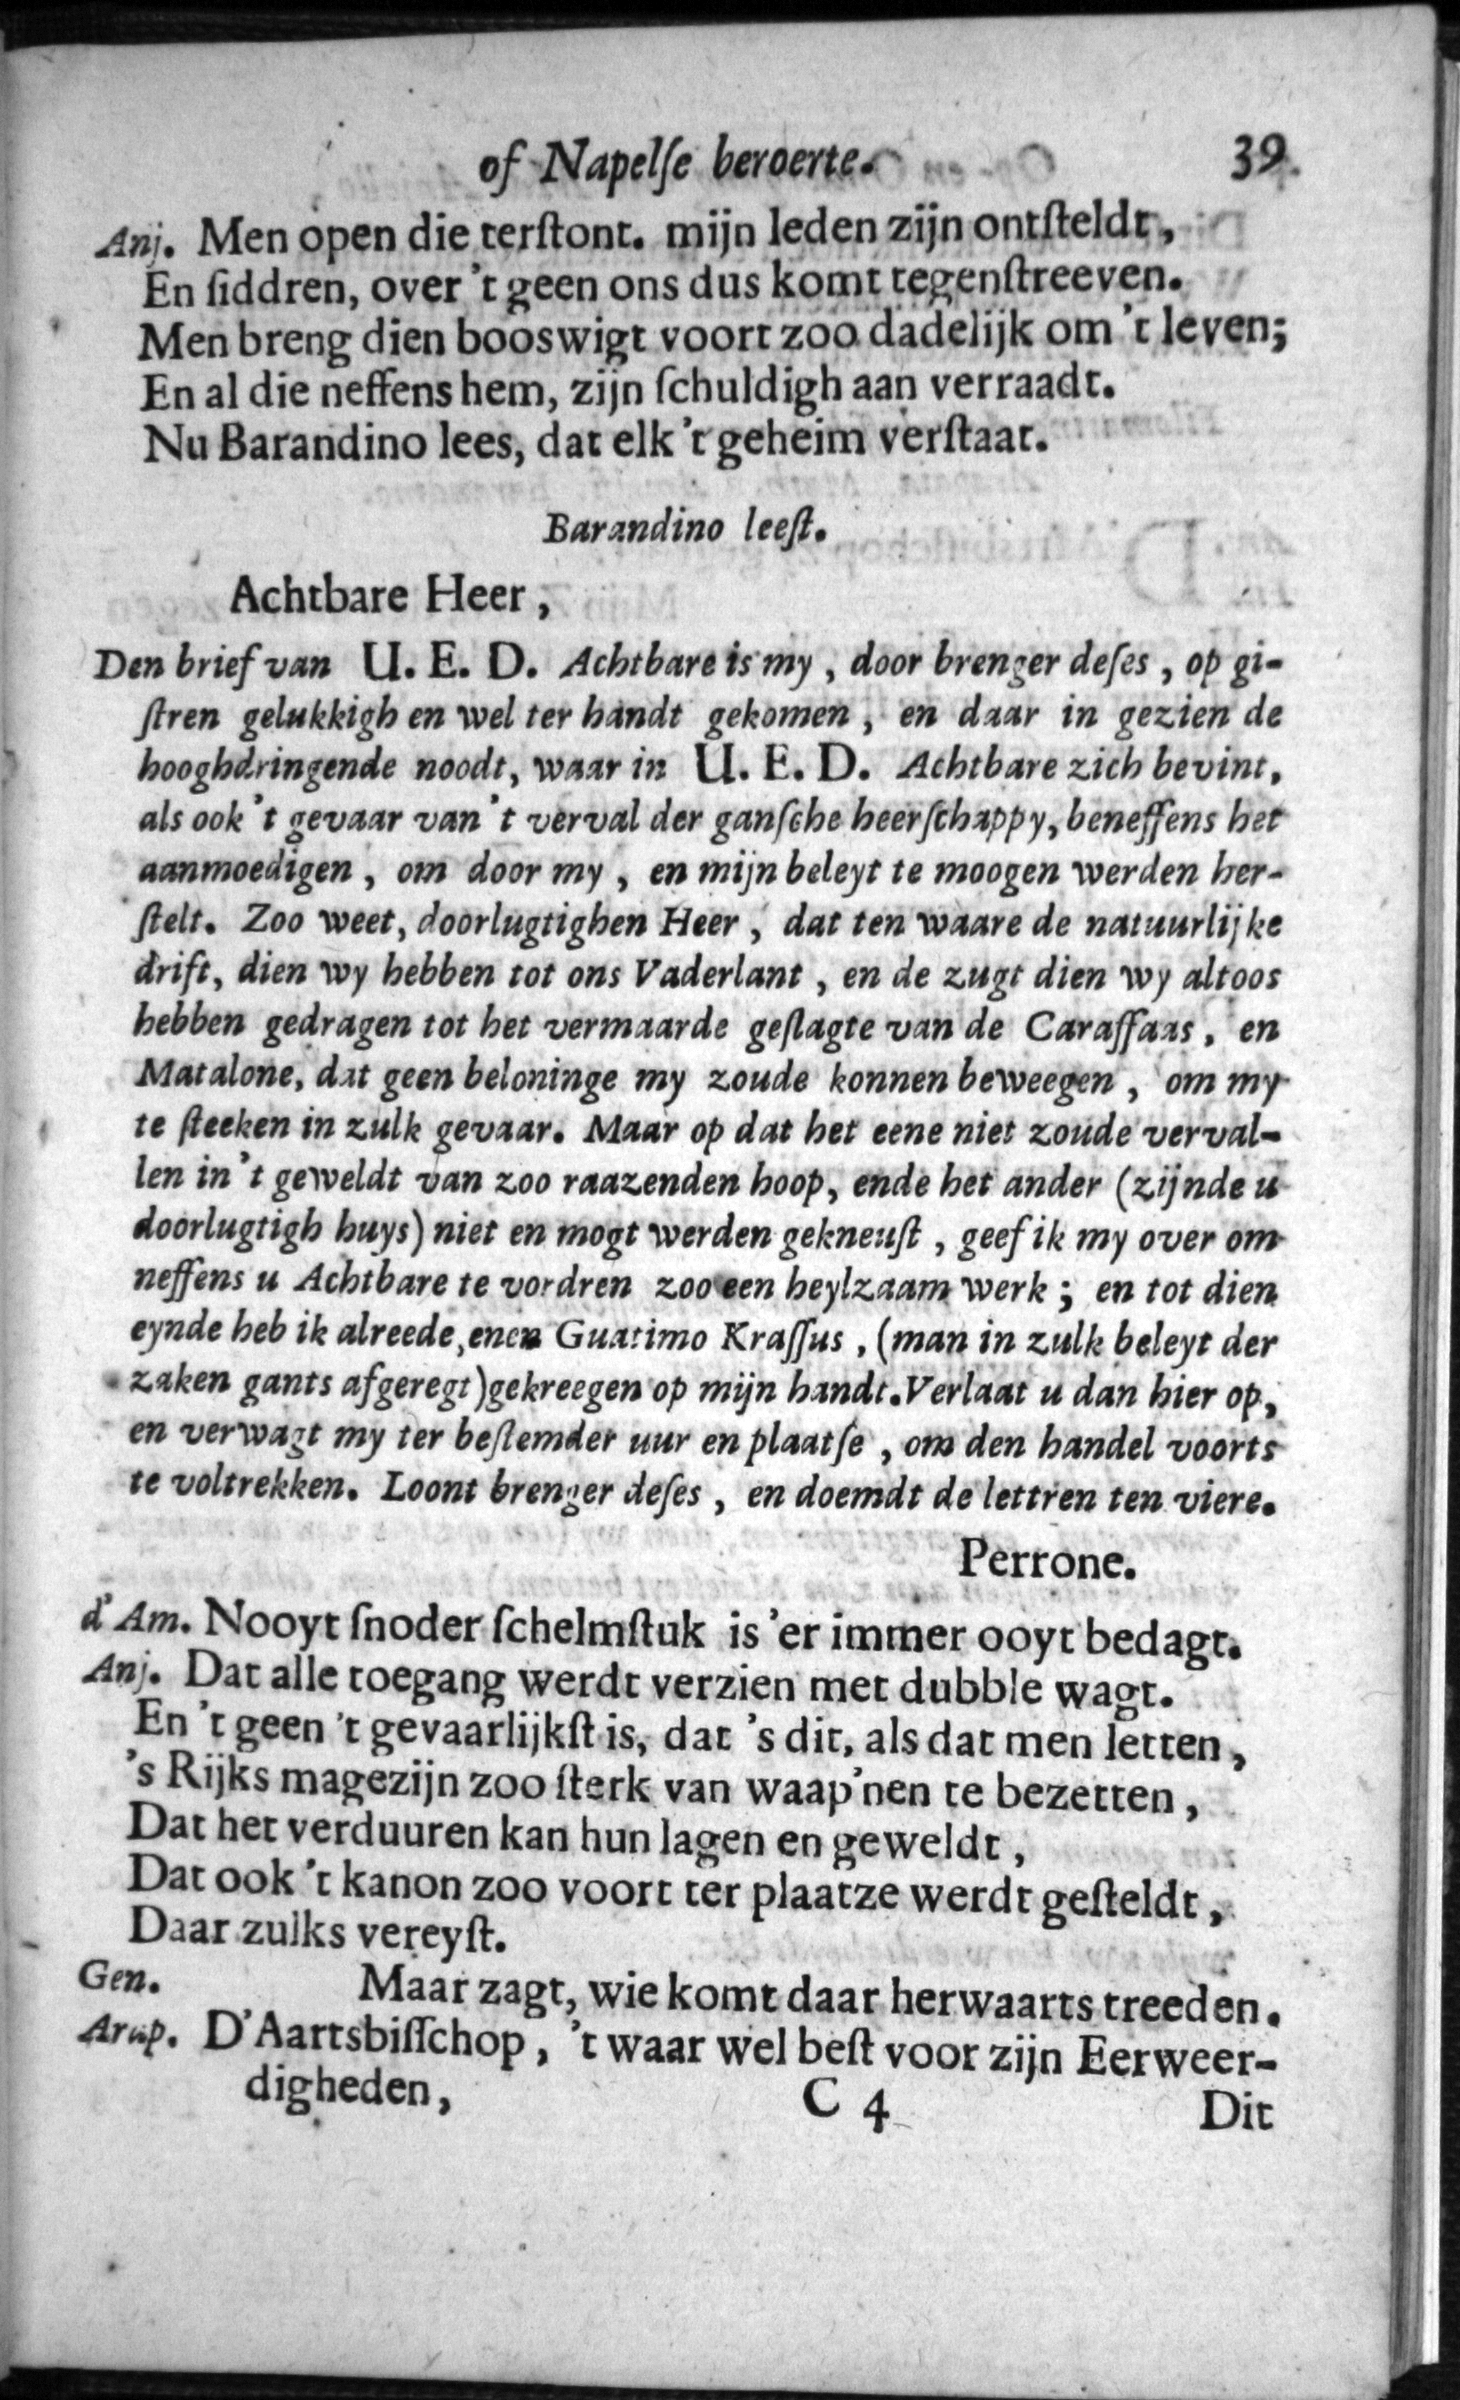 of Napelſe beroerte. 39
Anj. Men open die terſtont. mijn leden zijn ontſteldt,
En ſiddren, over 't geen ons dus komt tegenſtreeven.
Men breng dien booswigt voort zoo dadelijk om 't leven;
En al die neffens hem, zijn ſchuldigh aan verraadt.
Nu Barandino lees, dat elk 't geheim verſtaat.
Barandino leeſt.
Achtbare Heer,
Den brief van U. E. D. Achtbare is my, door brenger deſes, op gi-
ſtren gelukkigh en wel ter handt gekomen, en daar in gezien de
hooghdringende noodt, waar in U. E. D. Achtbare zich bevint,
als ook 't gevaar van 't verval der ganſche heerſchappy, beneffens het
aanmoedigen, om door my, en mijn beleyt te moogen werden her-
ſtelt. Zoo weet, doorlugtighen Heer, dat ten waare de natuurlijke
drift, dien wy hebben tot ons Vaderlant, en de zugt dien wy altoos
hebben gedragen tot het vermaarde geſlagte van de Caraffaas, en
Matalone, dat geen beloninge my zoude konnen beweegen, om my
te ſteeken in zulk gevaar. Maar op dat het eene niet zoude verval-
len in 't geweldt van zoo raazenden hoop, ende het ander (zijnde u
doorlugtigh huys) niet en mogt werden gekneuſt, geef ik my over om
neffens u Achtbare te vordren zoo een heylzaam werk; en tot dien
eynde heb ik alreede, enen Guatimo Kraſſus, (man in zulk beleyt der
zaken gants afgeregt) gekreegen op mijn handt. Verlaat u dan hier op,
en verwagt my ter beſtemder uur en plaatſe, om den handel voorts
te voltrekken. Loont brenger deſes, en doemdt de lettren ten viere.
Perrone.
d'Am. Nooyt ſnoder ſchelmſtuk is 'er immer ooyt bedagt.
Anj. Dat alle toegang werdt verzien met dubble wagt.
En 't geen 't gevaarlijkſt is, dat 's dit, als dat men letten,
's Rijks magezijn zoo ſterk van waap'nen te bezetten,
Dat het verduuren kan hun lagen en geweldt,
Dat ook 't kanon zoo voort ter plaatze werdt geſteldt,
Daar zulks vereyſt.
Gen. Maar zagt, wie komt daar herwaarts treeden.
Arap. D'Aartsbiſſchop, 't waar wel beſt voor zijn Eerweer-
digheden,
C 4 Dit